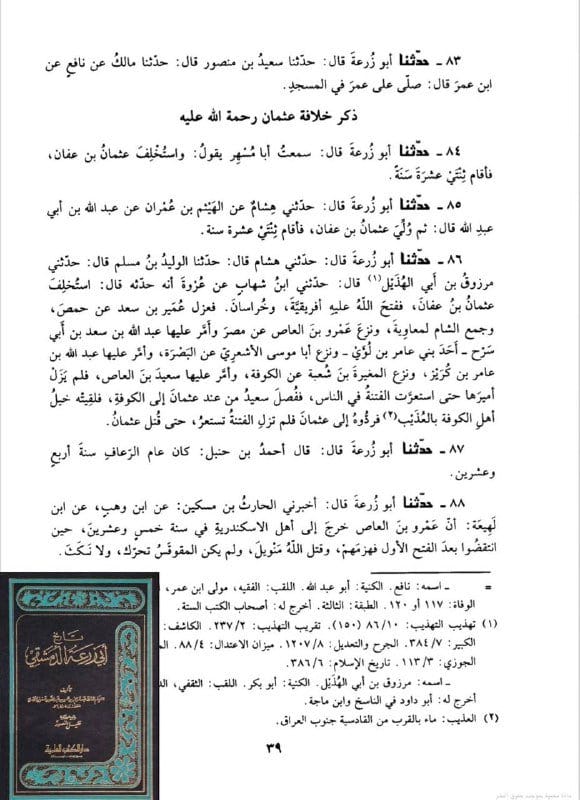 ٨٣ ـ حدّثنا أبو زُرعةَ قال: حدّثنا سعيدُ بن منصور قال: حدّثنا مالكُ عن نافعٍ عن
ابن عمرَ قال: صلّى على عمرَ في المسجدِ.
ذكر خلافة عثمان رحمة الله عليه
٨٤ ـ حدّثنا أبو زُرعةَ قال: سمعتُ أبا مُسْهِر يقولُ: واستُخْلِفَ عثمانُ بن عفان،
فأقام ثِنْتَيْ عشرَةَ سَنَةً.
٨٥ ـ حدّثنا أبو زُرعةَ قال: حدّثني هشامٌ عن الهَيْثم بن عُمْران عن عبد الله بن أبي
عبدِ الله قال: ثم وُلِّيَ عثمانُ بن عفان، فأقام ثِنْتَيْ عشرة سنة.
٨٦ ـ حدّثنا أبو زُرعةَ قال: حدّثني هشام قال: حدّثنا الوليدُ بنُ مسلم قال: حدّثني
مرزوقُ بن أبي الهُذَيْل(١) قال: حدّثني ابنُ شهابٍ عن عُرْوَةَ أنه حدّثه قال: استُخلِفَ
عثمانُ بنُ عفانَ، ففتحَ اللّهُ عليهِ أفريقيَّةَ، وخُراسانَ. فعزل عُمَير بن سعد عن حمصَ،
وجمع الشام لمعاويةَ، ونزعَ عَمْرو بنَ العاص عن مصرَ وأمَّر عليها عبد الله بن سعد بن أبي
سَرْح ـ أَحَدَ بني عامر بن لُؤَيّ ـ ونزع أبا موسى الأشعريّ عن البَصْرَة، وأمّر عليها عبد الله بن
عامر بن كُرَيْز، ونزع المغيرةَ بنَ شُعبة عن الكوفة، وأمّر عليها سعيدَ بنَ العاص، فلم يَزَلْ
أميرَها حتى استعرّت الفتنةُ في الناس، ففُصلَ سعيدُ من عند عثمانَ إلى الكوفةِ، فلقِيتْه خيلُ
أهلِ الكوفة بالعُذَيْب(٢) فردُّوهُ إلى عثمانَ فلم تزلِ الفتنةُ تستعرُ، حتى قُتل عثمانُ.
٨٧ ـ حدّثنا أبو زُرعةَ قال: قال أحمدُ بن حنبل: كان عام الرّعافِ سنةَ أربعٍ
وعشرين.
٨٨ ـ حدّثنا أبو زُرعةَ قال: أخبرني الحارثُ بن مسكين: عن ابن وهبٍ، عن ابن
لَهِيعَة: أنّ عَمْرو بنَ العاص خرجَ إلى أهل الاسكندريةِ في سنة خمسٍ وعشرينَ، حين
انتقضُوا بعدَ الفتح الأول فهزمَهمْ، وقتل اللّهُ مَنْويلَ، ولم يكن المقوقسُ تحرّك، ولا نَكَثَ.
= ـ اسمه: نافع. الكنية: أبو عبد الله. اللقب: الفقيه، مولى ابن عمر،
الوفاة: ١١٧ أو ١٢٠. الطبقة: الثالثة. أخرج له: أصحاب الكتب الستة.
(١) تهذيب التهذيب: ٨٦/١٠ (١٥٠). تقريب التهذيب: ٢٣٧/٢. الكاشف:
الكبير: ٣٨٤/٧. الجرح والتعديل: ١٢٠٧/٨. ميزان الاعتدال: ٨٨/٤.
الجوزي: ١١٣/٣. تاريخ الإسلام: ٣٨٦/٦.
ـ اسمه: مرزوق بن أبي الهُذَيْل. الكنية: أبو بكر. اللقب: الثقفي،
أخرج له: أبو داود في الناسخ وابن ماجة.
(٢) العذيب: ماء بالقرب من القادسية جنوب العراق.
٣٩
تاريخ
أبي زرعة الدمشقي
دار الكتب العلمية